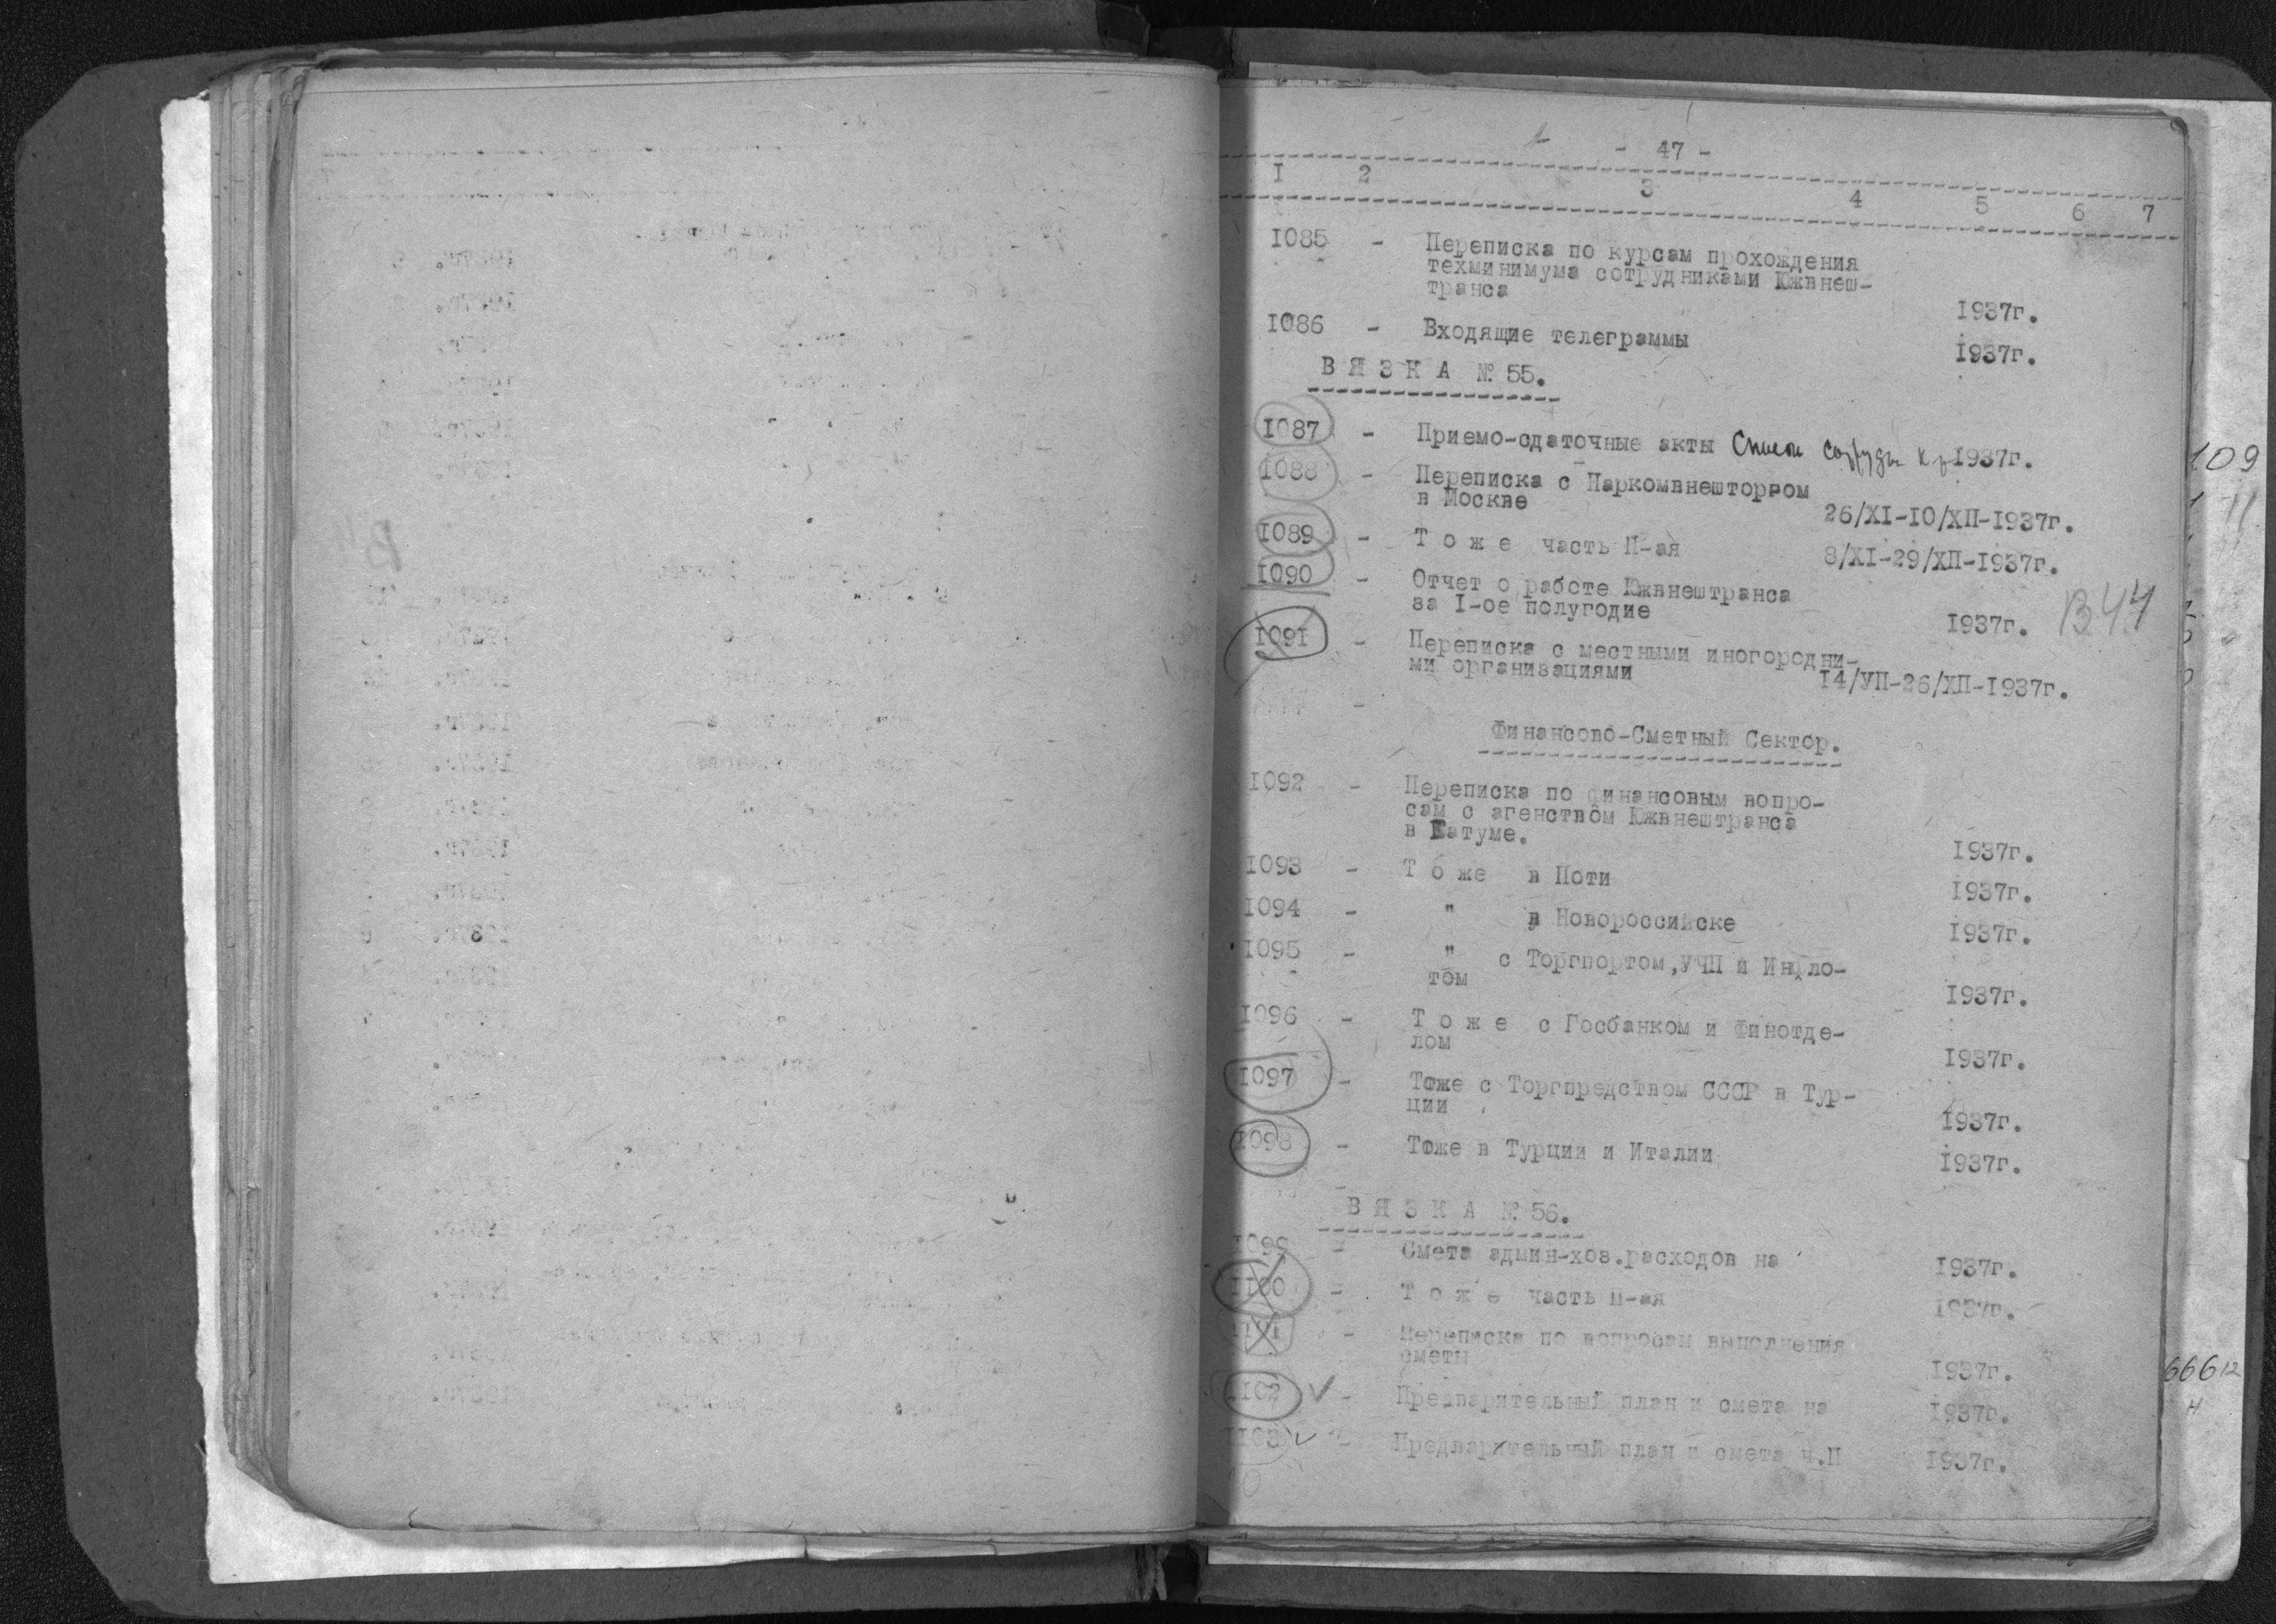 - 47 -
I 2 3 4 5 6 7
I085 - Переписка по курсам прохождения
техминимума сотрудниками Южвнеш-
транса I937г.
I086 - Входящие телеграммы I937г.
В Я З К А № 55.
I087 - Приемо-сдаточные акты I937г.
109
I088 - Переписка с Наркомвнешторгом
в Москве 26/XI-IO/XП-I937г.
11
I089 - Т о ж е часть П-ая 8/XI-29/XП-I937г.
I090 - Отчет о работе Южвнештранса
за I-ое полугодие I937г. В44
I091 - Переписка с местными иногородни-
ми организациями I4/УП-26/XП-I937г.
Финансово-Сметный Сектор.
I092 - Переписка по финансовым вопро-
сам с агенством Южвнештранса
в Батуме. I937г.
I093 - Т о же в Поти I937г.
I094 - " в Новороссийске I937г.
I095 - " с Торгпортом,УЧП и Инфло-
том I937г.
I096 - Т о ж е с Госбанком и Финотде-
лом I937г.
I097 - Тоже с Торгпредством СССР в Тур-
ции I937г.
I098 - Тоже в Турции и Италии I937г.
В Я З К А № 56.
I099 - Смета админ-хоз.расходов на I937г.
II00 - Т о ж е часть П-ая I937г.
II0I - Переписка по вопросам выполнения
сметы I937г.
II02 - Предварительный план и смета на I937г.
666
II03 - Предварительный план и смета ч.П I937г.